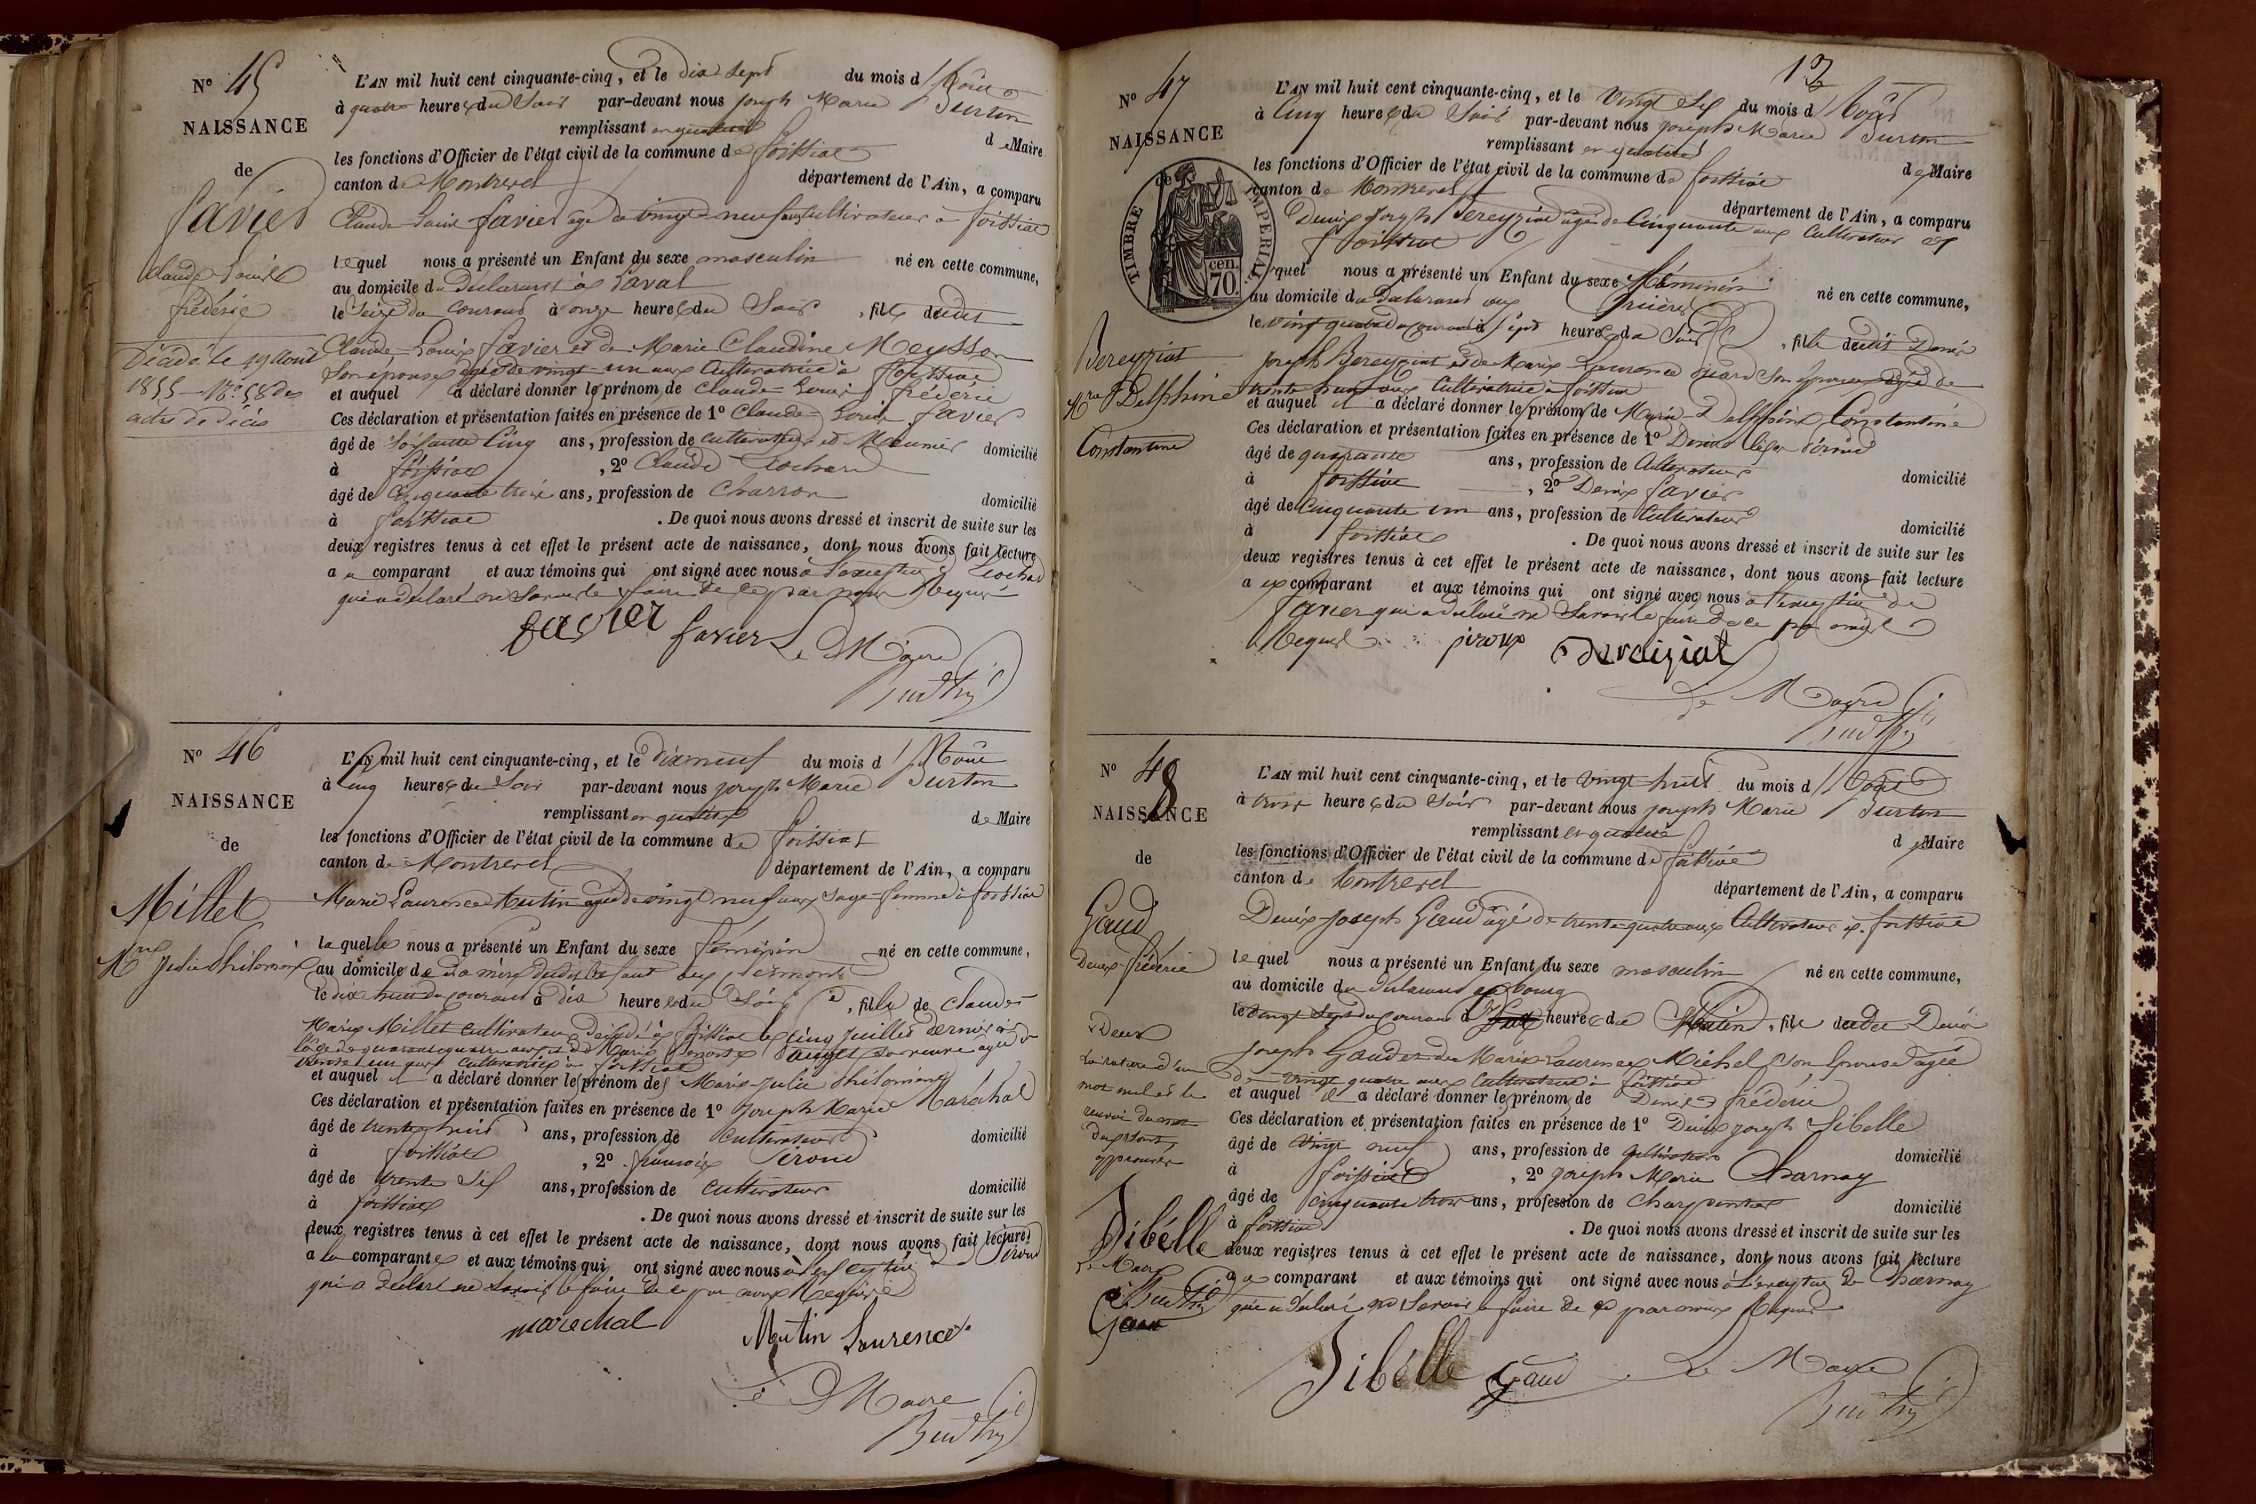 N° 45
NAISSANCE
de
Favier
Claude Louis
Frédéric
Décédé le 19 août
1855 N° 58 des
actes de décès
L'AN mil huit cent cinquante-cinq, et le dix sept du mois d'Août
à quatre heures du Soir par-devant nous Joseph Marie Burtin
remplissant en qualité de Maire
les fonctions d'Officier de l'état civil de la commune de foissiat
canton de Montrevel département de l'Ain, a comparu
Claude Louis favier âgé de vingt neuf ans Cultivateur à foissiat
lequel nous a présenté un Enfant du sexe masculin né en cette commune,
au domicile du Déclarant à Laval
le Seize du courant à onze heures du Soir, fils dudit
Claude Louis favier et de Marie Claudine Meysson
Son épouse âgée de vingt un ans Cultivatrice à foissiat
et auquel il a déclaré donner les prénom de Claude Louis frédéric
Ces déclaration et présentation faites en présence de 1° Claude Louis favier
âgé de Soixante Cinq ans, profession de cultivateur et Meunier domicilié
à foissiat, 2° Claude Rochard
âgé de Cinquante trois ans, profession de Charron domicilié
à foissiat. De quoi nous avons dressé et inscrit de suite sur les
deux registres tenus à cet effet le présent acte de naissance, dont nous avons fait lecture
au comparant et aux témoins qui ont signé avec nous à l'exception de
qui a déclaré ne Savoir le faire de ce par nous Requis
favier favier Le Maire
Burtin
N° 46
NAISSANCE
de
Millet
Mie Julie Philomène
L'AN mil huit cent cinquante-cinq, et le dix neuf du mois d'Août
à Cinq heures du Soir par-devant nous Joseph Marie Burtin
remplissant en qualité de Maire
les fonctions d'Officier de l'état civil de la commune de foissiat
canton de Montrevel département de l'Ain, a comparu
Marie Laurence Mutin âgée de vingt neuf ans Sage-femme à foissiat
laquelle nous a présenté un Enfant du sexe féminin né en cette commune,
au domicile de la mère dudit enfant
le dix huit du courant à dix heures du Soir, fille de Claude
Marie Millet cultivateur Décédé à foissiat le cinq Juillet dernier à
l'âge de quarante quatre ans et de Marie sa veuve âgée de
trente un ans cultivatrice à foissiat
et auquel a déclaré donner les prénom de Marie Julie Philomène
Ces déclaration et présentation faites en présence de 1° Joseph Marie Maréchal
âgé de trente huit ans, profession de cultivateur domicilié
à foissiat, 2° françois Péroud
âgé de trente Six ans, profession de Cultivateur domicilié
à foissiat. De quoi nous avons dressé et inscrit de suite sur les
deux registres tenus à cet effet le présent acte de naissance, dont nous avons fait lecture
a la comparante et aux témoins qui ont signé avec nous à l'exception de Péroud
qui a déclaré ne Savoir le faire de ce par nous Requis
marechal Mutin Laurence
Le Maire
Burtin
12
N° 47
NAISSANCE
de
TIMBRE IMPERIAL
cen. 70.
Bereyziat
Mie Delphine
Constantine
L'AN mil huit cent cinquante-cinq, et le vingt Six du mois d'Août
à Cinq heures du Soir par-devant nous Joseph Marie Burtin
remplissant en qualité de Maire
les fonctions d'Officier de l'état civil de la commune de foissiat
canton de Montrevel département de l'Ain, a comparu
Denis Joseph Bereyziat âgé de Cinquante ans Cultivateur à
foissiat
lequel nous a présenté un Enfant du sexe féminin né en cette commune,
au domicile du Déclarant aux
le vingt quatre du courant à Sept heures du Soir, fille dudit Denis
Joseph Bereyziat et de Marie Laurence Son épouse âgée de
trente ans Cultivatrice à foissiat
et auquel il a déclaré donner les prénom de Marie Delphine Constantine
Ces déclaration et présentation faites en présence de 1° Denis
âgé de quarante ans, profession de Cultivateur domicilié
à foissiat, 2° Denis favier
âgé de Cinquante un ans, profession de Cultivateur domicilié
à foissiat. De quoi nous avons dressé et inscrit de suite sur les
deux registres tenus à cet effet le présent acte de naissance, dont nous avons fait lecture
au comparant et aux témoins qui ont signé avec nous à l'exception de
favier qui a déclaré ne Savoir le faire de ce par nous
Requis
Le Maire
Burtin
N° 48
NAISSANCE
de
Gaud
Denis frédéric
Deux
La rature d'un
mot nul et le
renvoi du mot
approuvés
Sibélle
Le Maire
Burtin
Gaud
L'AN mil huit cent cinquante-cinq, et le vingt huit du mois d'Août
à trois heures du Soir par-devant nous Joseph Marie Burtin
remplissant en qualité de Maire
les fonctions d'Officier de l'état civil de la commune de foissiat
canton de Montrevel département de l'Ain, a comparu
Denis Joseph Gaud âgé de trente quatre ans Cultivateur à foissiat
lequel nous a présenté un Enfant du sexe masculin né en cette commune,
au domicile du déclarant au bourg
le vingt Sept du courant à heures du Matin, fils dudit Denis
Joseph Gaud et de Marie Laurence Michel Son épouse âgée
de vingt quatre ans Cultivatrice à foissiat
et auquel il a déclaré donner les prénom de Denis frédéric
Ces déclaration et présentation faites en présence de 1° Denis Joseph Sibelle
âgé de vingt neuf ans, profession de Cultivateur domicilié
à foissiat, 2° Joseph Marie Charnay
âgé de cinquante trois ans, profession de Charpentier domicilié
à foissiat. De quoi nous avons dressé et inscrit de suite sur les
deux registres tenus à cet effet le présent acte de naissance, dont nous avons fait lecture
au comparant et aux témoins qui ont signé avec nous à l'exception de Charnay
qui a déclaré ne Savoir le faire de ce par nous Requis
Sibélle Gaud Le Maire
Burtin